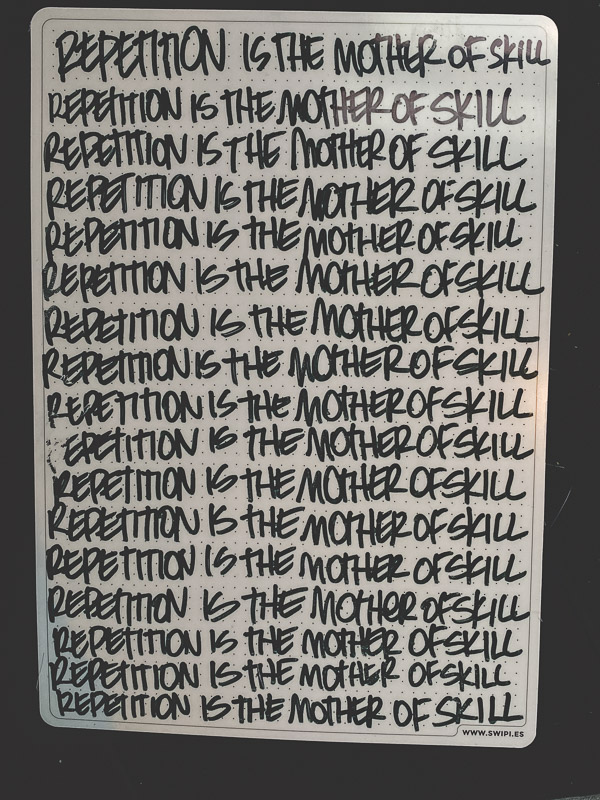 REPETITION IS THE MOTHER OF SKILL
REPETITION IS THE MOTHER OF SKILL
REPETITION IS THE MOTHER OF SKILL
REPETITION IS THE MOTHER OF SKILL
REPETITION IS THE MOTHER OF SKILL
REPETITION IS THE MOTHER OF SKILL
REPETITION IS THE MOTHER OF SKILL
REPETITION IS THE MOTHER OF SKILL
REPETITION IS THE MOTHER OF SKILL
EPETITION IS THE MOTHER OF SKILL
REPETITION IS THE MOTHER OF SKILL
REPETITION IS THE MOTHER OF SKILL
REPETITION IS THE MOTHER OF SKILL
REPETITION IS THE MOTHER OF SKILL
REPETITION IS THE MOTHER OF SKILL
REPETITION IS THE MOTHER OF SKILL
REPETITION IS THE MOTHER OF SKILL
WWW.SWIPI.ES